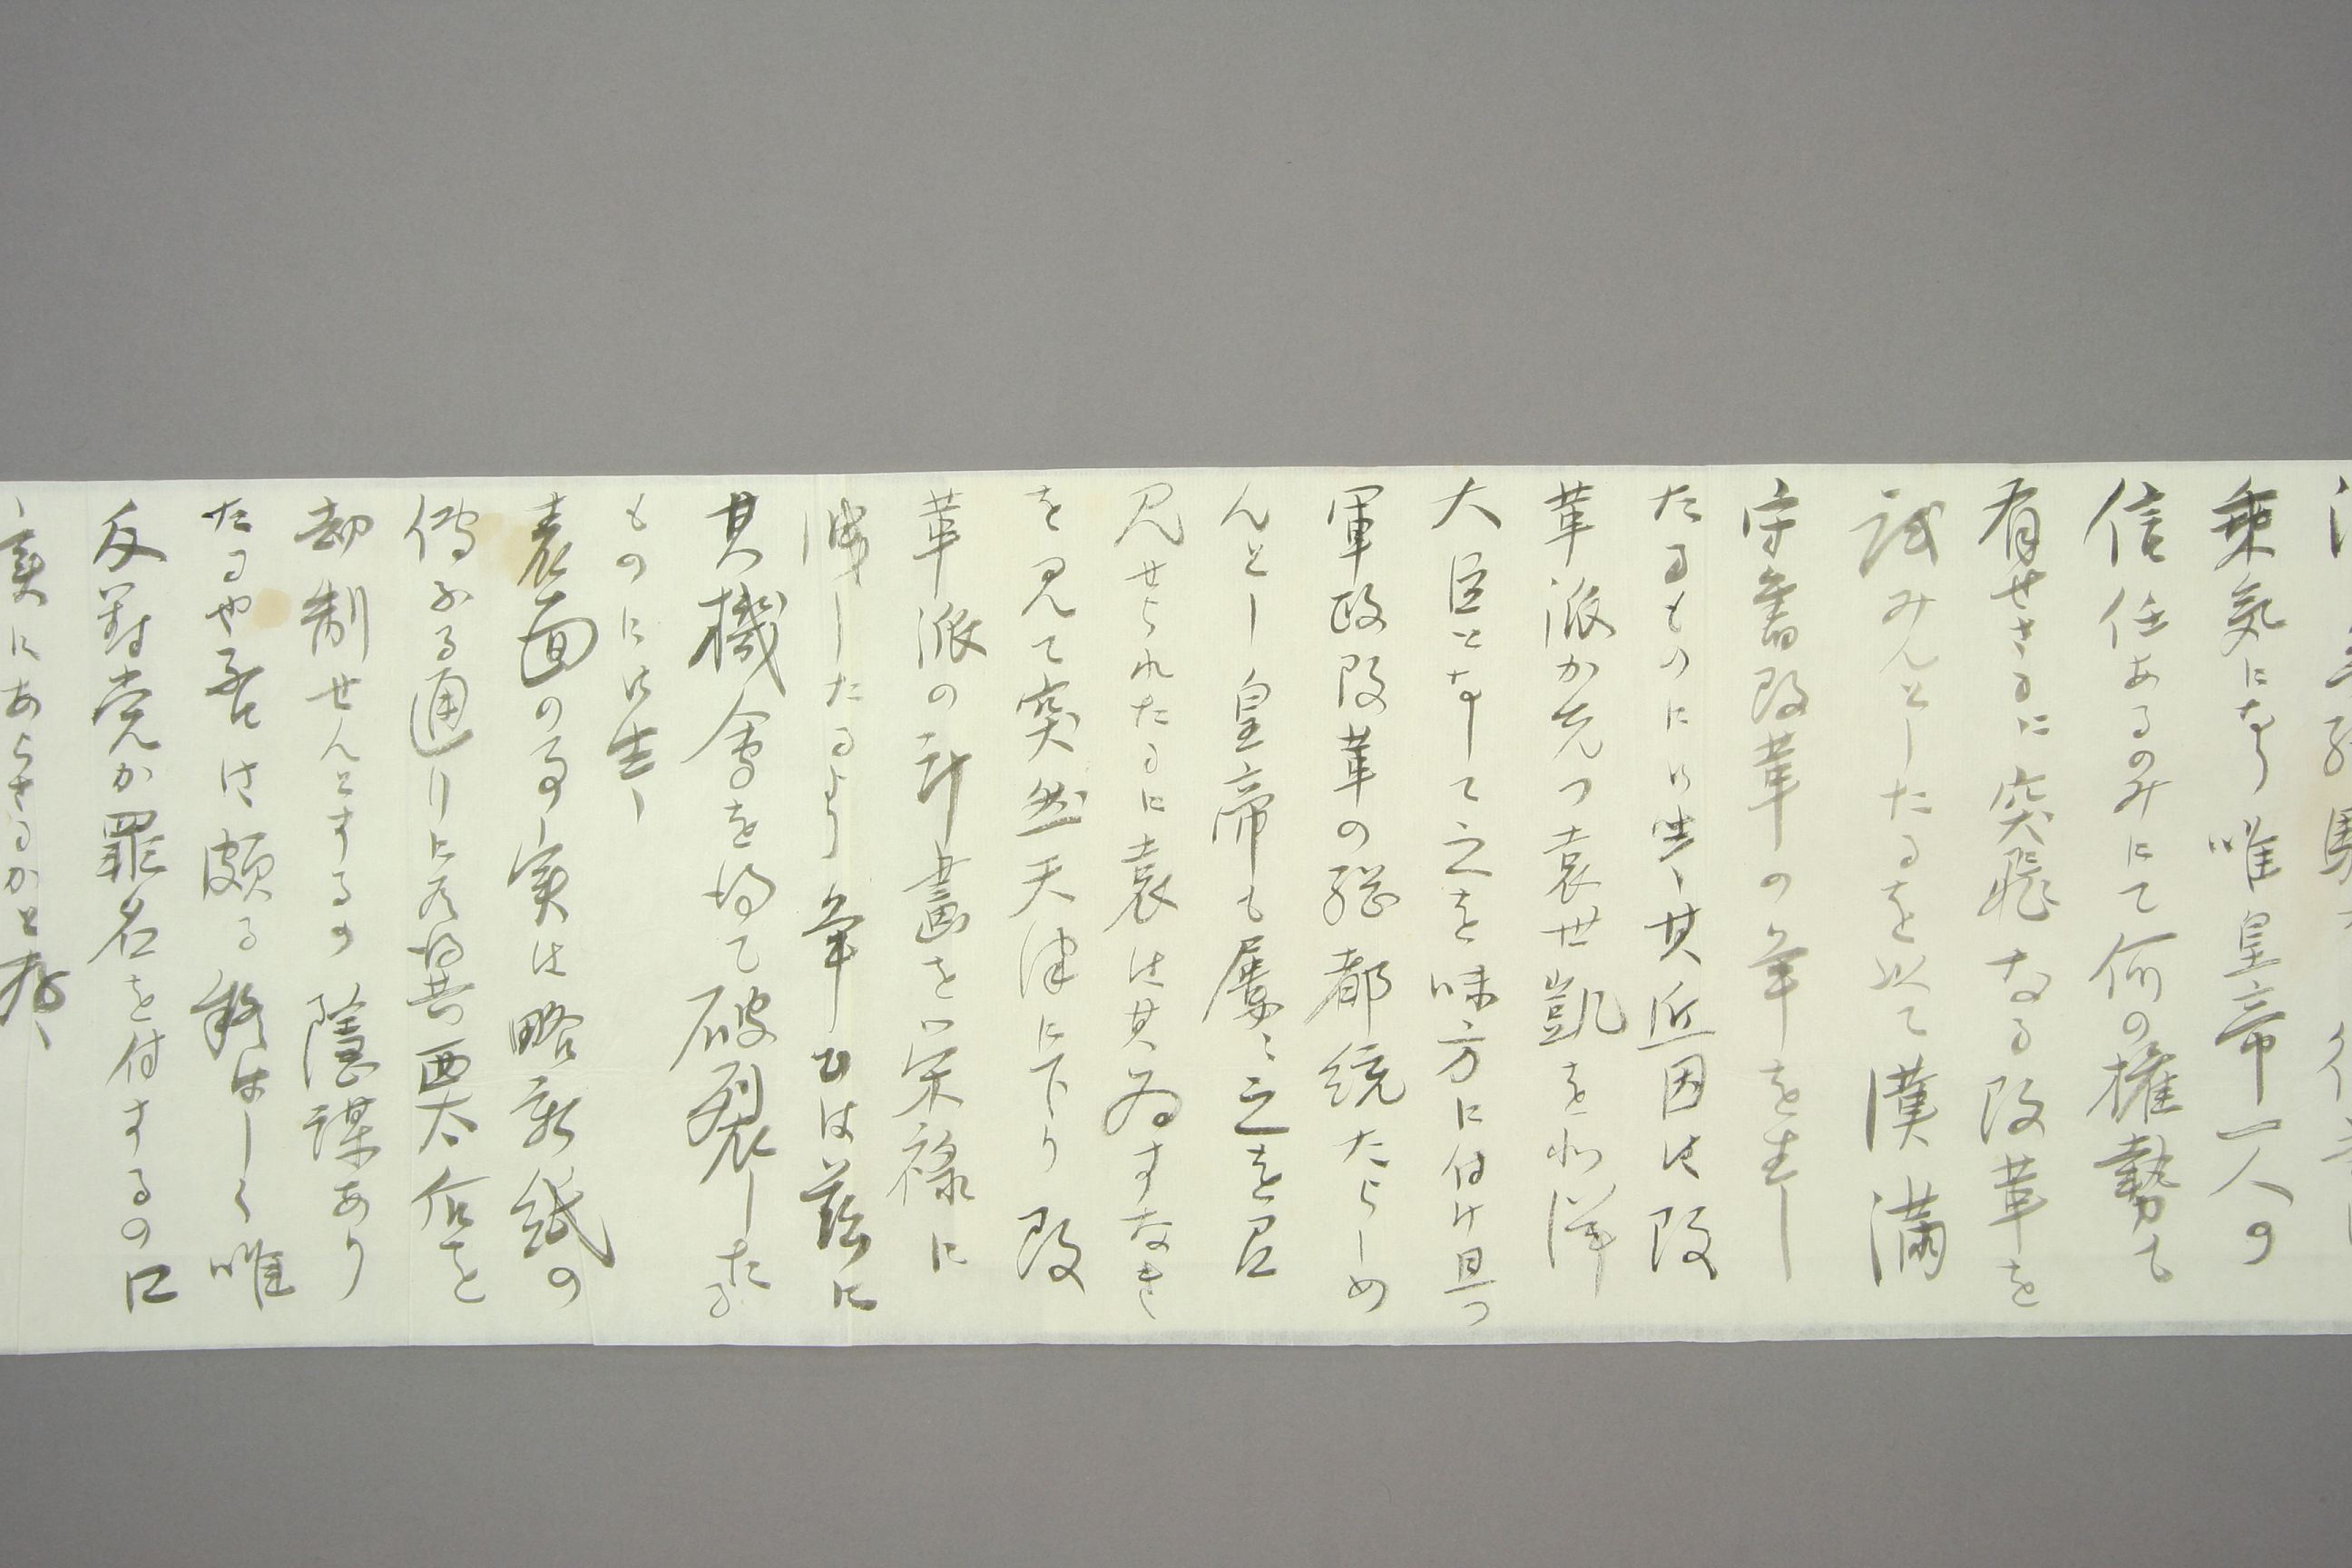 乗気になり唯皇帝一人の
信任あるのみにて何の権勢も
有せさるに突飛なる改革を
試みんとしたるを以て漢満
守旧改革の争を生し
たるものに御坐候其近因は改
革派か先つ袁世凱を
大臣となして之を味方に付け且つ
軍政改革の総都統たらしめ
んとし皇帝も屡々之を召
見せられたるに袁は其為すなき
を見て突然天津に下り改
革派の計畫を栄禄に
洩したるより争ひは茲に
其機會を得て破裂したる
ものに御坐候
表面の事実は略新紙の
傳ふる通りに候得共西太后を
劫制せんとするの陰謀あり
たるや否は頗る疑はしく唯
反対党か罪名を付するの口
実にあらさるかと存候